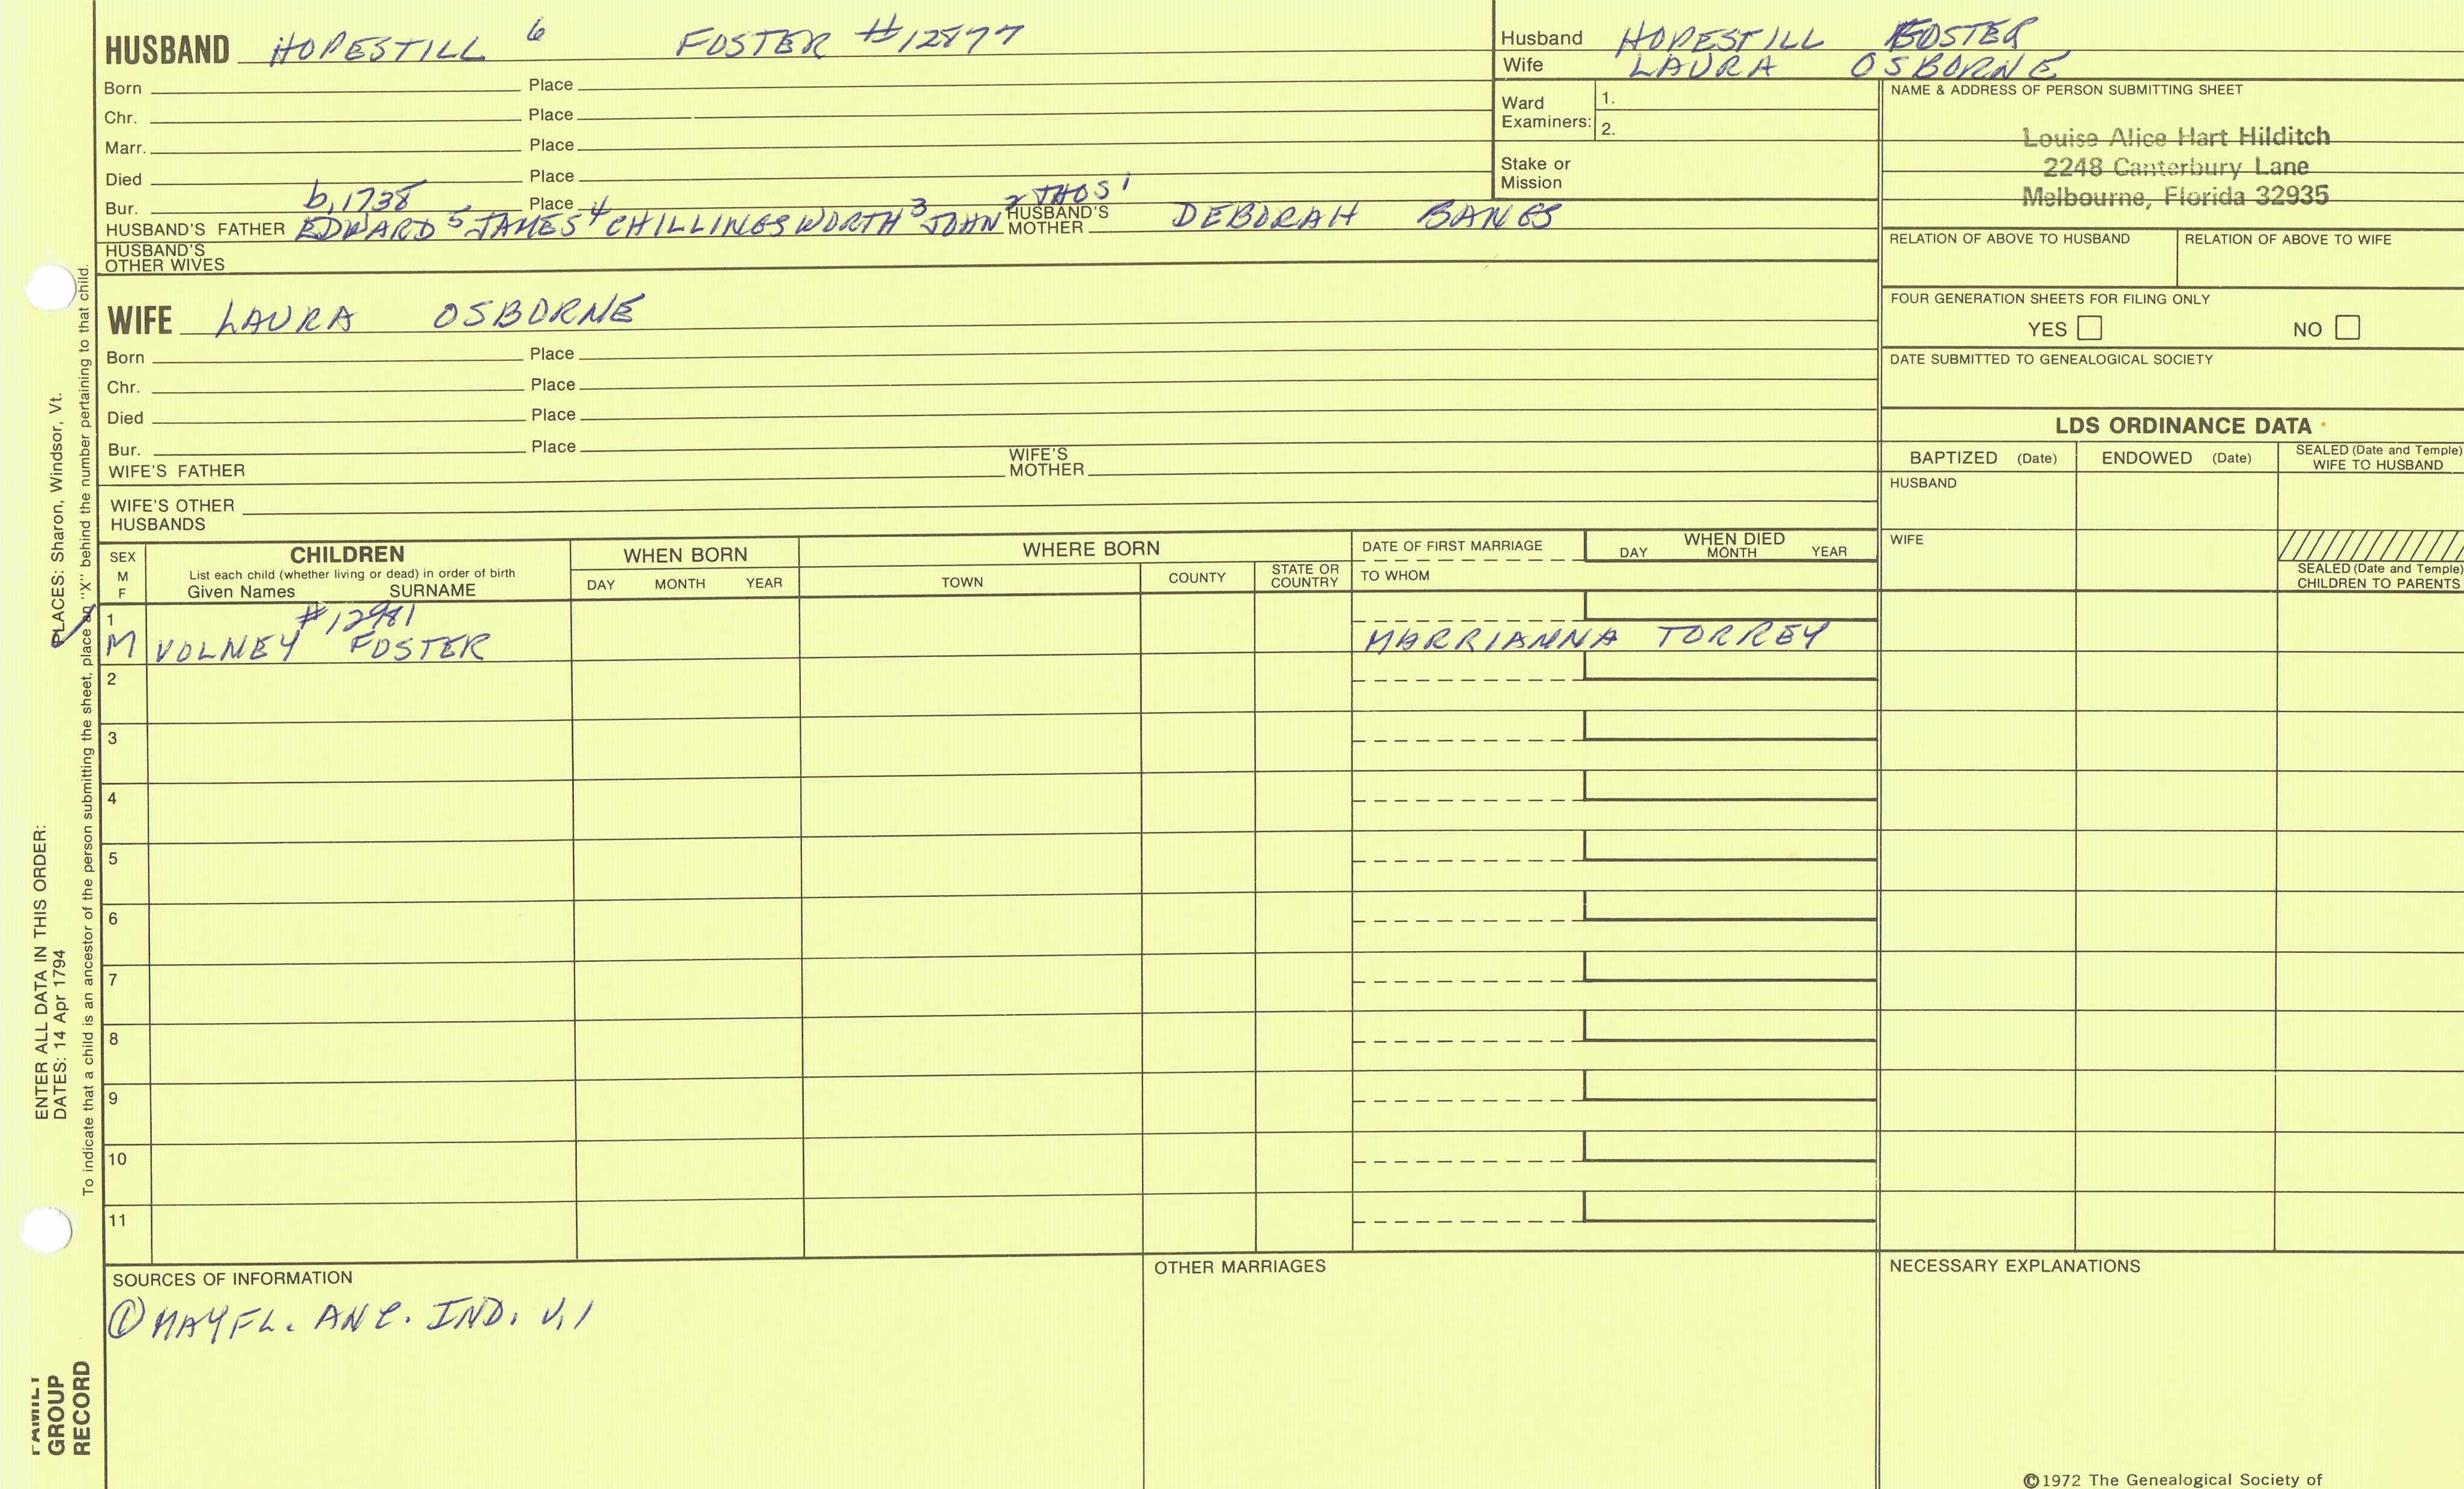 HUSBAND HOPESTILL 6 FOSTER #12877
Born Place
Chr. Place
Marr. Place
Died Place
b, 1738
Bur. Place 2 THOS 1
HUSBAND'S FATHER EDWARD 5 JAMES 4 CHILLINGSWORTH 3 JOHN HUSBAND'S MOTHER DEBORAH BANGS
HUSBAND'S OTHER WIVES
Husband HOPESTILL FOSTER
Wife LAURA OSBORNE
Ward Examiners: 1.
2.
Stake or Mission
NAME & ADDRESS OF PERSON SUBMITTING SHEET
Louise Alice Hart Hilditch
2248 Canterbury Lane
Melbourne, Florida 32935
RELATION OF ABOVE TO HUSBAND RELATION OF ABOVE TO WIFE
FOUR GENERATION SHEETS FOR FILING ONLY
YES NO
DATE SUBMITTED TO GENEALOGICAL SOCIETY
WIFE LAURA OSBORNE
Born Place
Chr. Place
Died Place
Bur. Place
WIFE'S FATHER WIFE'S MOTHER
WIFE'S OTHER HUSBANDS
LDS ORDINANCE DATA
BAPTIZED (Date) ENDOWED (Date) SEALED (Date and Temple) WIFE TO HUSBAND
HUSBAND
WIFE
SEALED (Date and Temple) CHILDREN TO PARENTS
SEX M F
CHILDREN
List each child (whether living or dead) in order of birth
Given Names SURNAME
WHEN BORN
DAY MONTH YEAR
WHERE BORN
TOWN COUNTY STATE OR COUNTRY
DATE OF FIRST MARRIAGE
TO WHOM
WHEN DIED
DAY MONTH YEAR
1 #12981
M VOLNEY FOSTER MARRIANNA TORREY
2
3
4
5
6
7
8
9
10
11
SOURCES OF INFORMATION
① MAYFL. ANC. IND. V, 1
OTHER MARRIAGES
NECESSARY EXPLANATIONS
©1972 The Genealogical Society of
ENTER ALL DATA IN THIS ORDER:
DATES: 14 Apr 1794 PLACES: Sharon, Windsor, Vt.
To indicate that a child is an ancestor of the person submitting the sheet, place an "X" behind the number pertaining to that child.
FAMILY
GROUP
RECORD